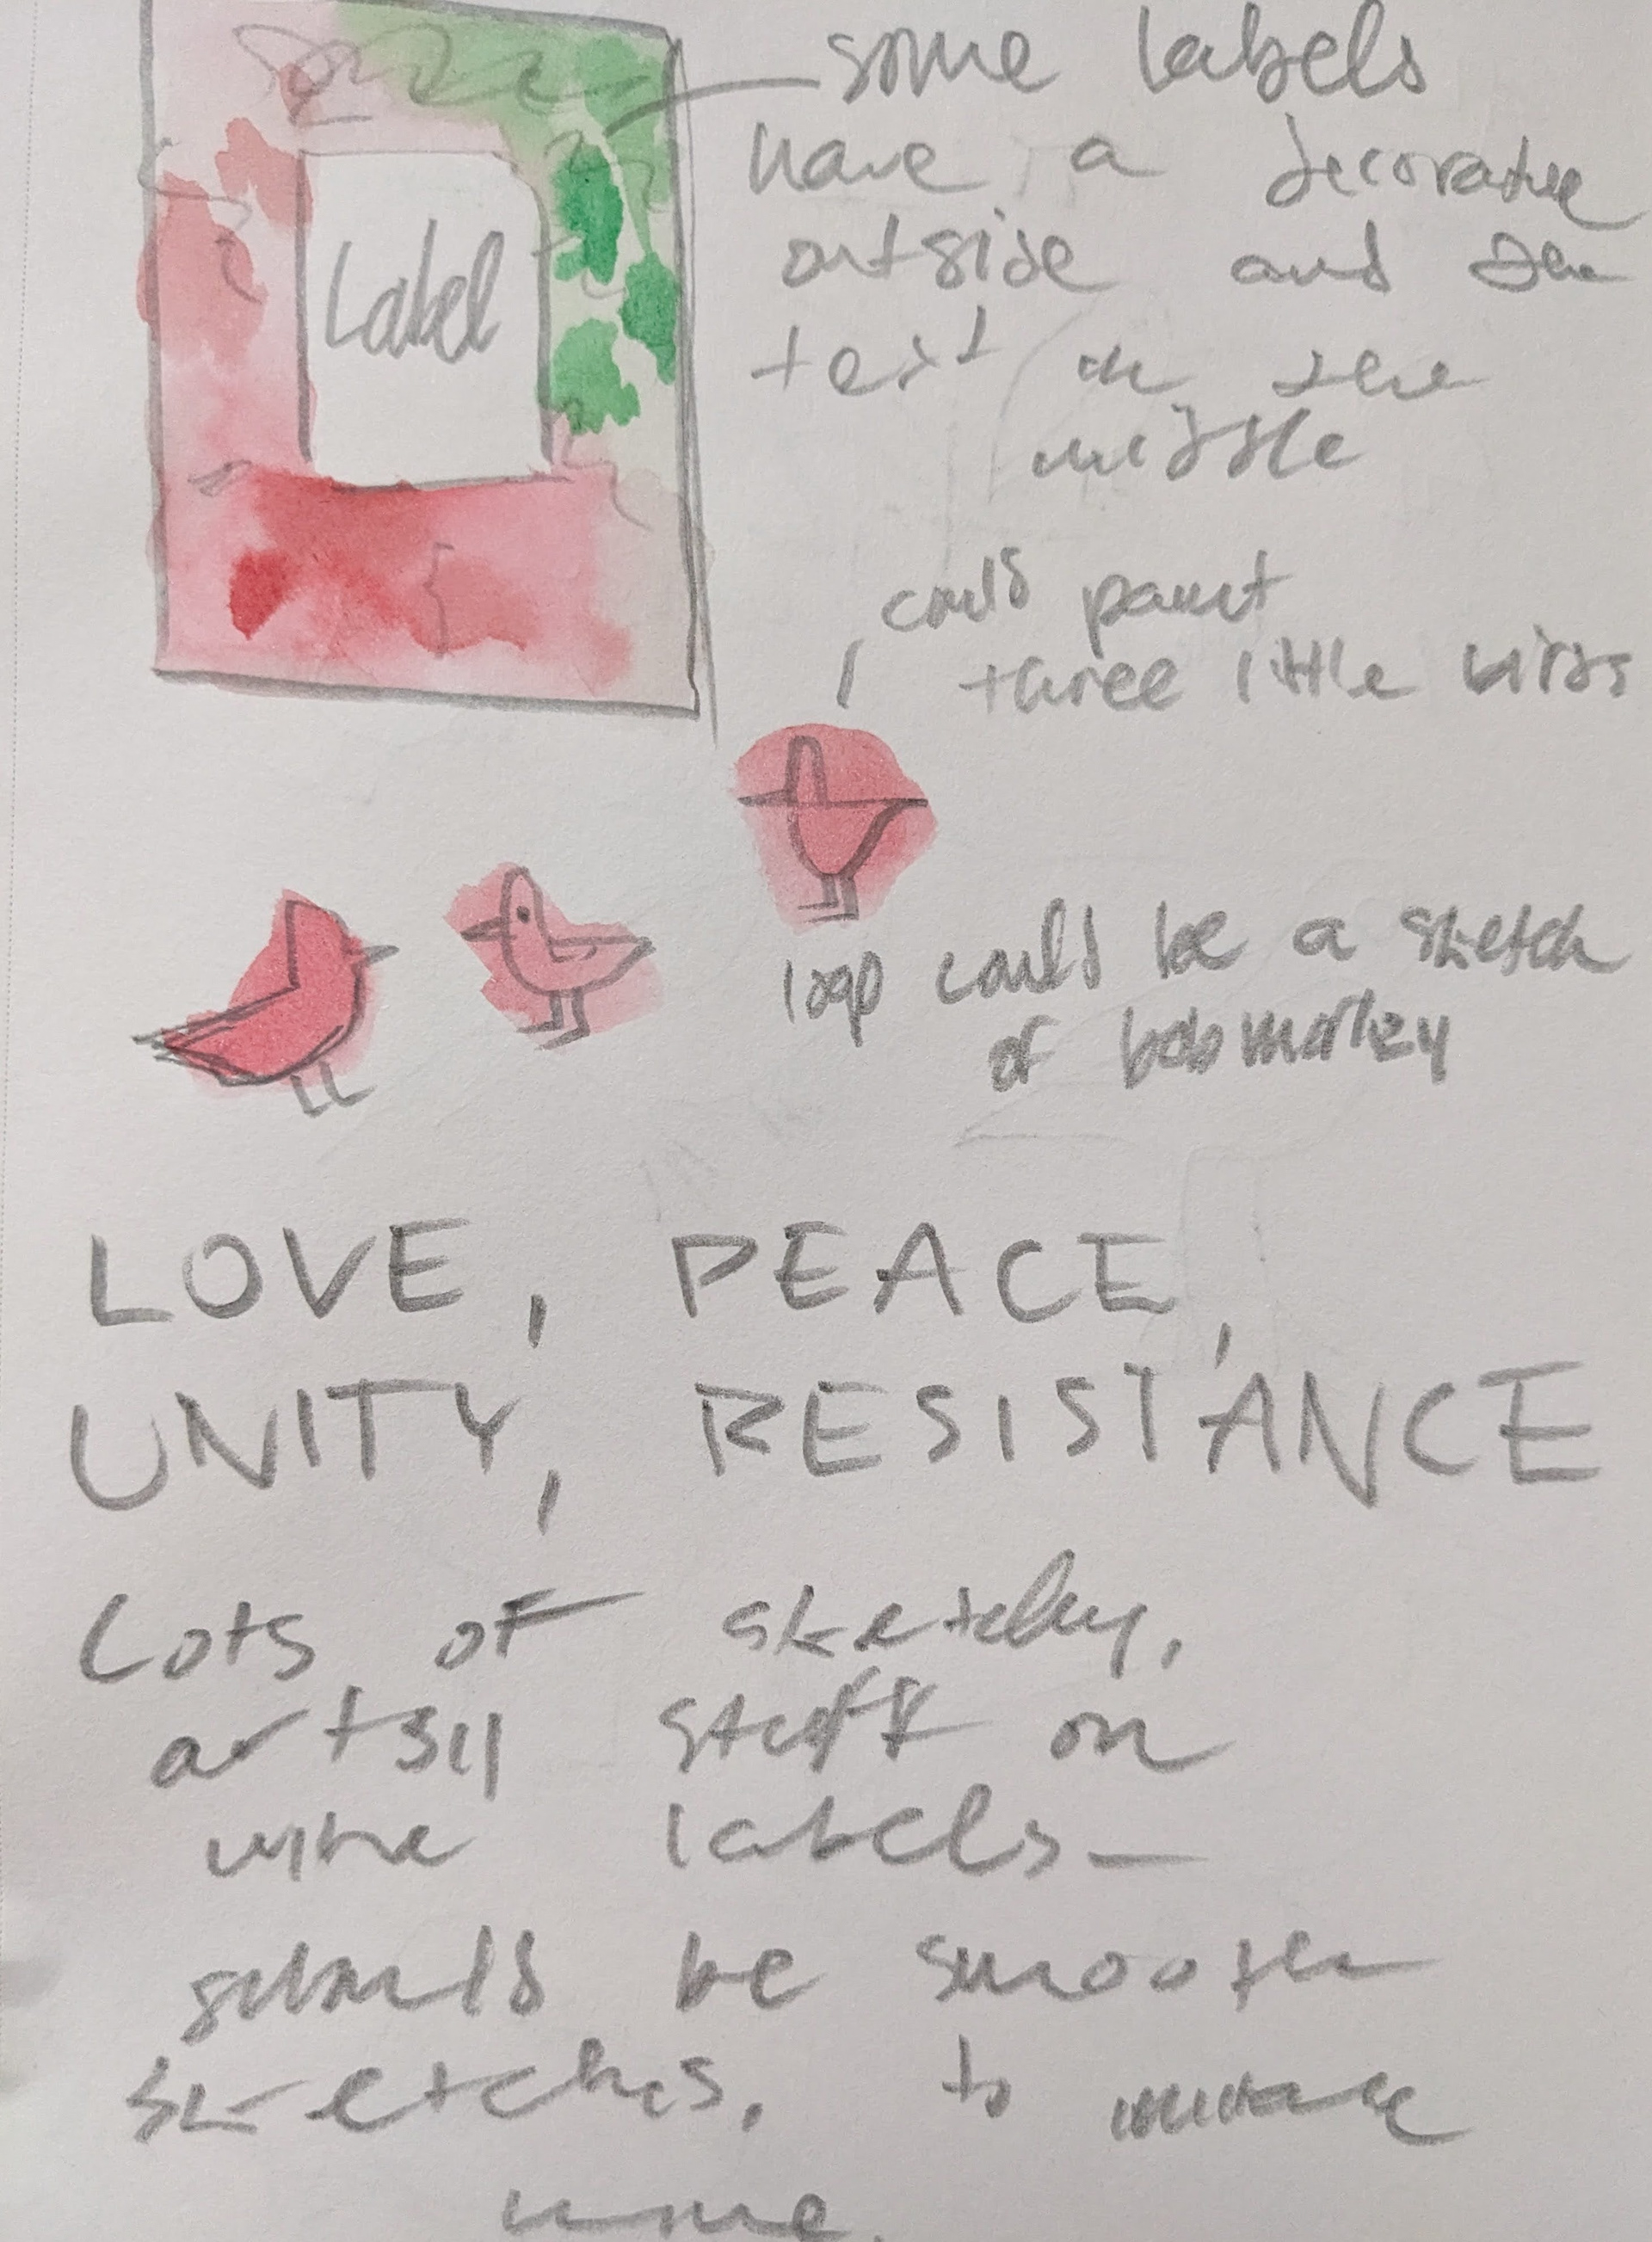 Label
some labels
have a decorative
outside and the
text in the
middle
could paint
three little birds
logo could be a sketch
of bob marley
LOVE, PEACE,
UNITY, RESISTANCE
Lots of sketchy,
artsy stuff on
wine labels—
should be smooth
sketches, to
wine.